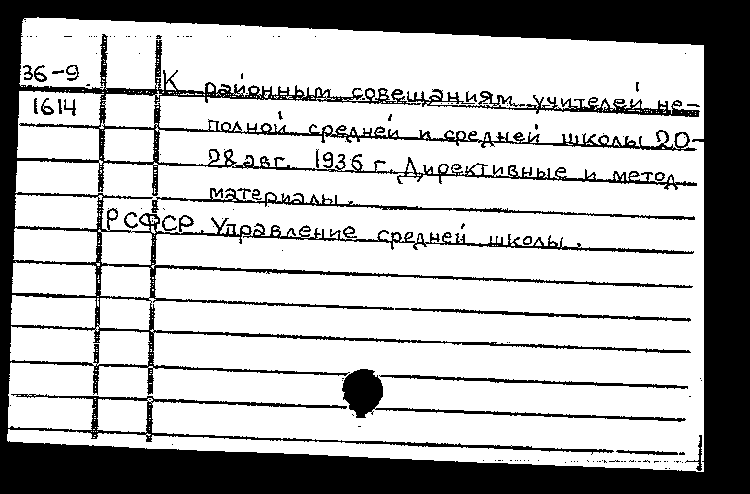 36-9 К районным совещаниям учителей не-
1614 полной средней и средней школы 20-
28 авг. 1936 г. Директивные и метод.
материалы.
РСФСР. Управление средней школы.